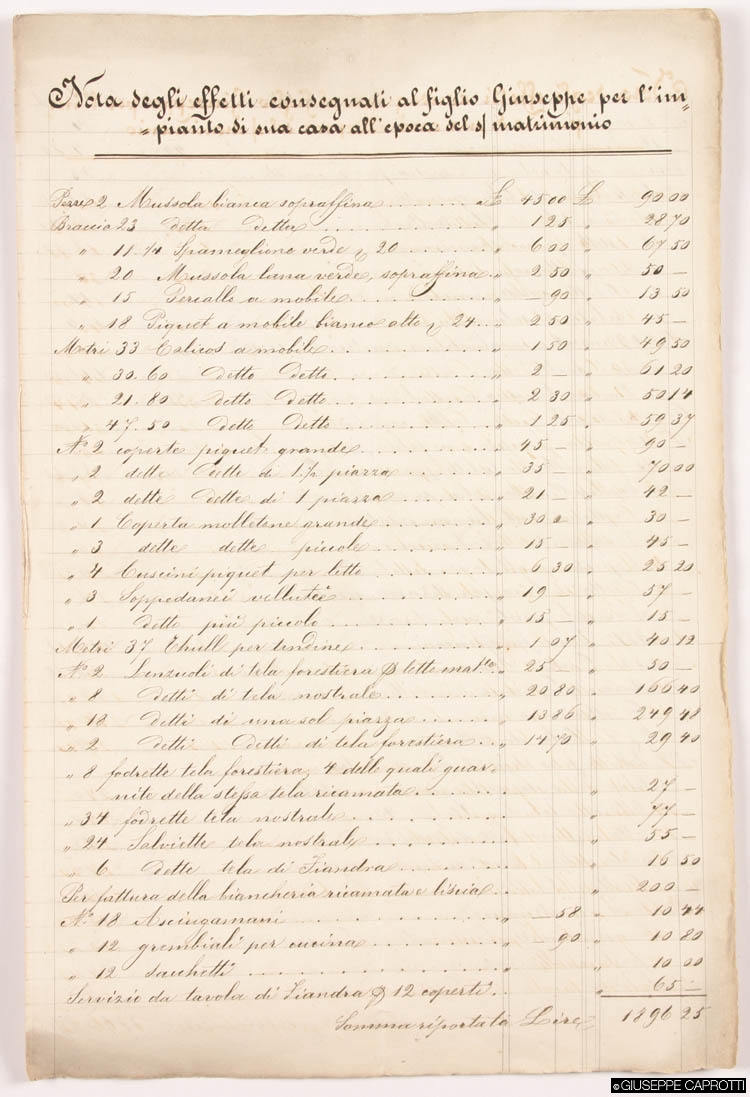 Nota degli effetti consegnati al figlio Giuseppe per l'im=
=pianto di sua casa all'epoca del s/ matrimonio
Pezze 2 Mussola bianca sopraffina ........ £ 45 00 £ 90 00
Braccia 23 detta detta ........ „ 1 25 „ 28 70
„ 11.¼ Spameglione verde 20 ........ „ 6 00 „ 67 50
„ 20 Mussola lana verde, sopraffina .. „ 2 50 „ 50 —
„ 15 Percallo a mobile ........ „ — 90 „ 13 50
„ 18 Piquet a mobile bianco alto 24 .. „ 2 50 „ 45 —
Metri 33 Calicos a mobile ........ „ 1 50 „ 49 50
„ 30.60 detto detto ........ „ 2 — „ 61 20
„ 21.80 detto detto ........ „ 2 30 „ 50 14
„ 47.50 detto detto ........ „ 1 25 „ 59 37
N° 2 coperte piquet grande ........ „ 45 — „ 90 —
„ 2 dette dette di 1.½ piazza ........ „ 35 — „ 70 00
„ 2 dette dette di 1 piazza ........ „ 21 — „ 42 —
„ 1 Coperta molletone grande ........ „ 30 „ 30 —
„ 3 dette dette piccole ........ „ 15 — „ 45 —
„ 4 Cuscini piquet per letto ........ „ 6 30 „ 25 20
„ 3 Soppedanei vellutée ........ „ 19 — „ 57 —
„ 1 detto più piccolo ........ „ 15 — „ 15 —
Metri 37 Thull per tendine ........ „ 1 07 „ 40 12
N° 2 Lenzuoli di tela forestiera letto mat.le .. „ 25 — „ 50 —
„ 8 Detti di tela nostrale ........ „ 20 80 „ 166 40
„ 18 Detti di una sol piazza ........ „ 13 86 „ 249 48
„ 2 Detti Detti di tela forestiera .. „ 14 70 „ 29 40
„ 8 fodrette tela forestiera, 4 delle quali guar-
nite della stessa tela ricamata ........ „ 27 —
„ 34 fodrette tela nostrale ........ „ 77 —
„ 24 Salviette tela nostrale ........ „ 55 —
„ 6 Dette tela di Fiandra ........ „ 16 50
Per fattura della biancheria ricamata e liscia .. „ 200 —
N° 18 Asciugamani ........ „ — 58 „ 10 44
„ 12 grembiali per cucina ........ „ — 90 „ 10 80
„ 12 sacchetti ........ „ „ 10 00
Servizio da tavola di Fiandra 12 coperti .. „ 65 —
Somma riportata Lire 1896 25
©GIUSEPPE CAPROTTI